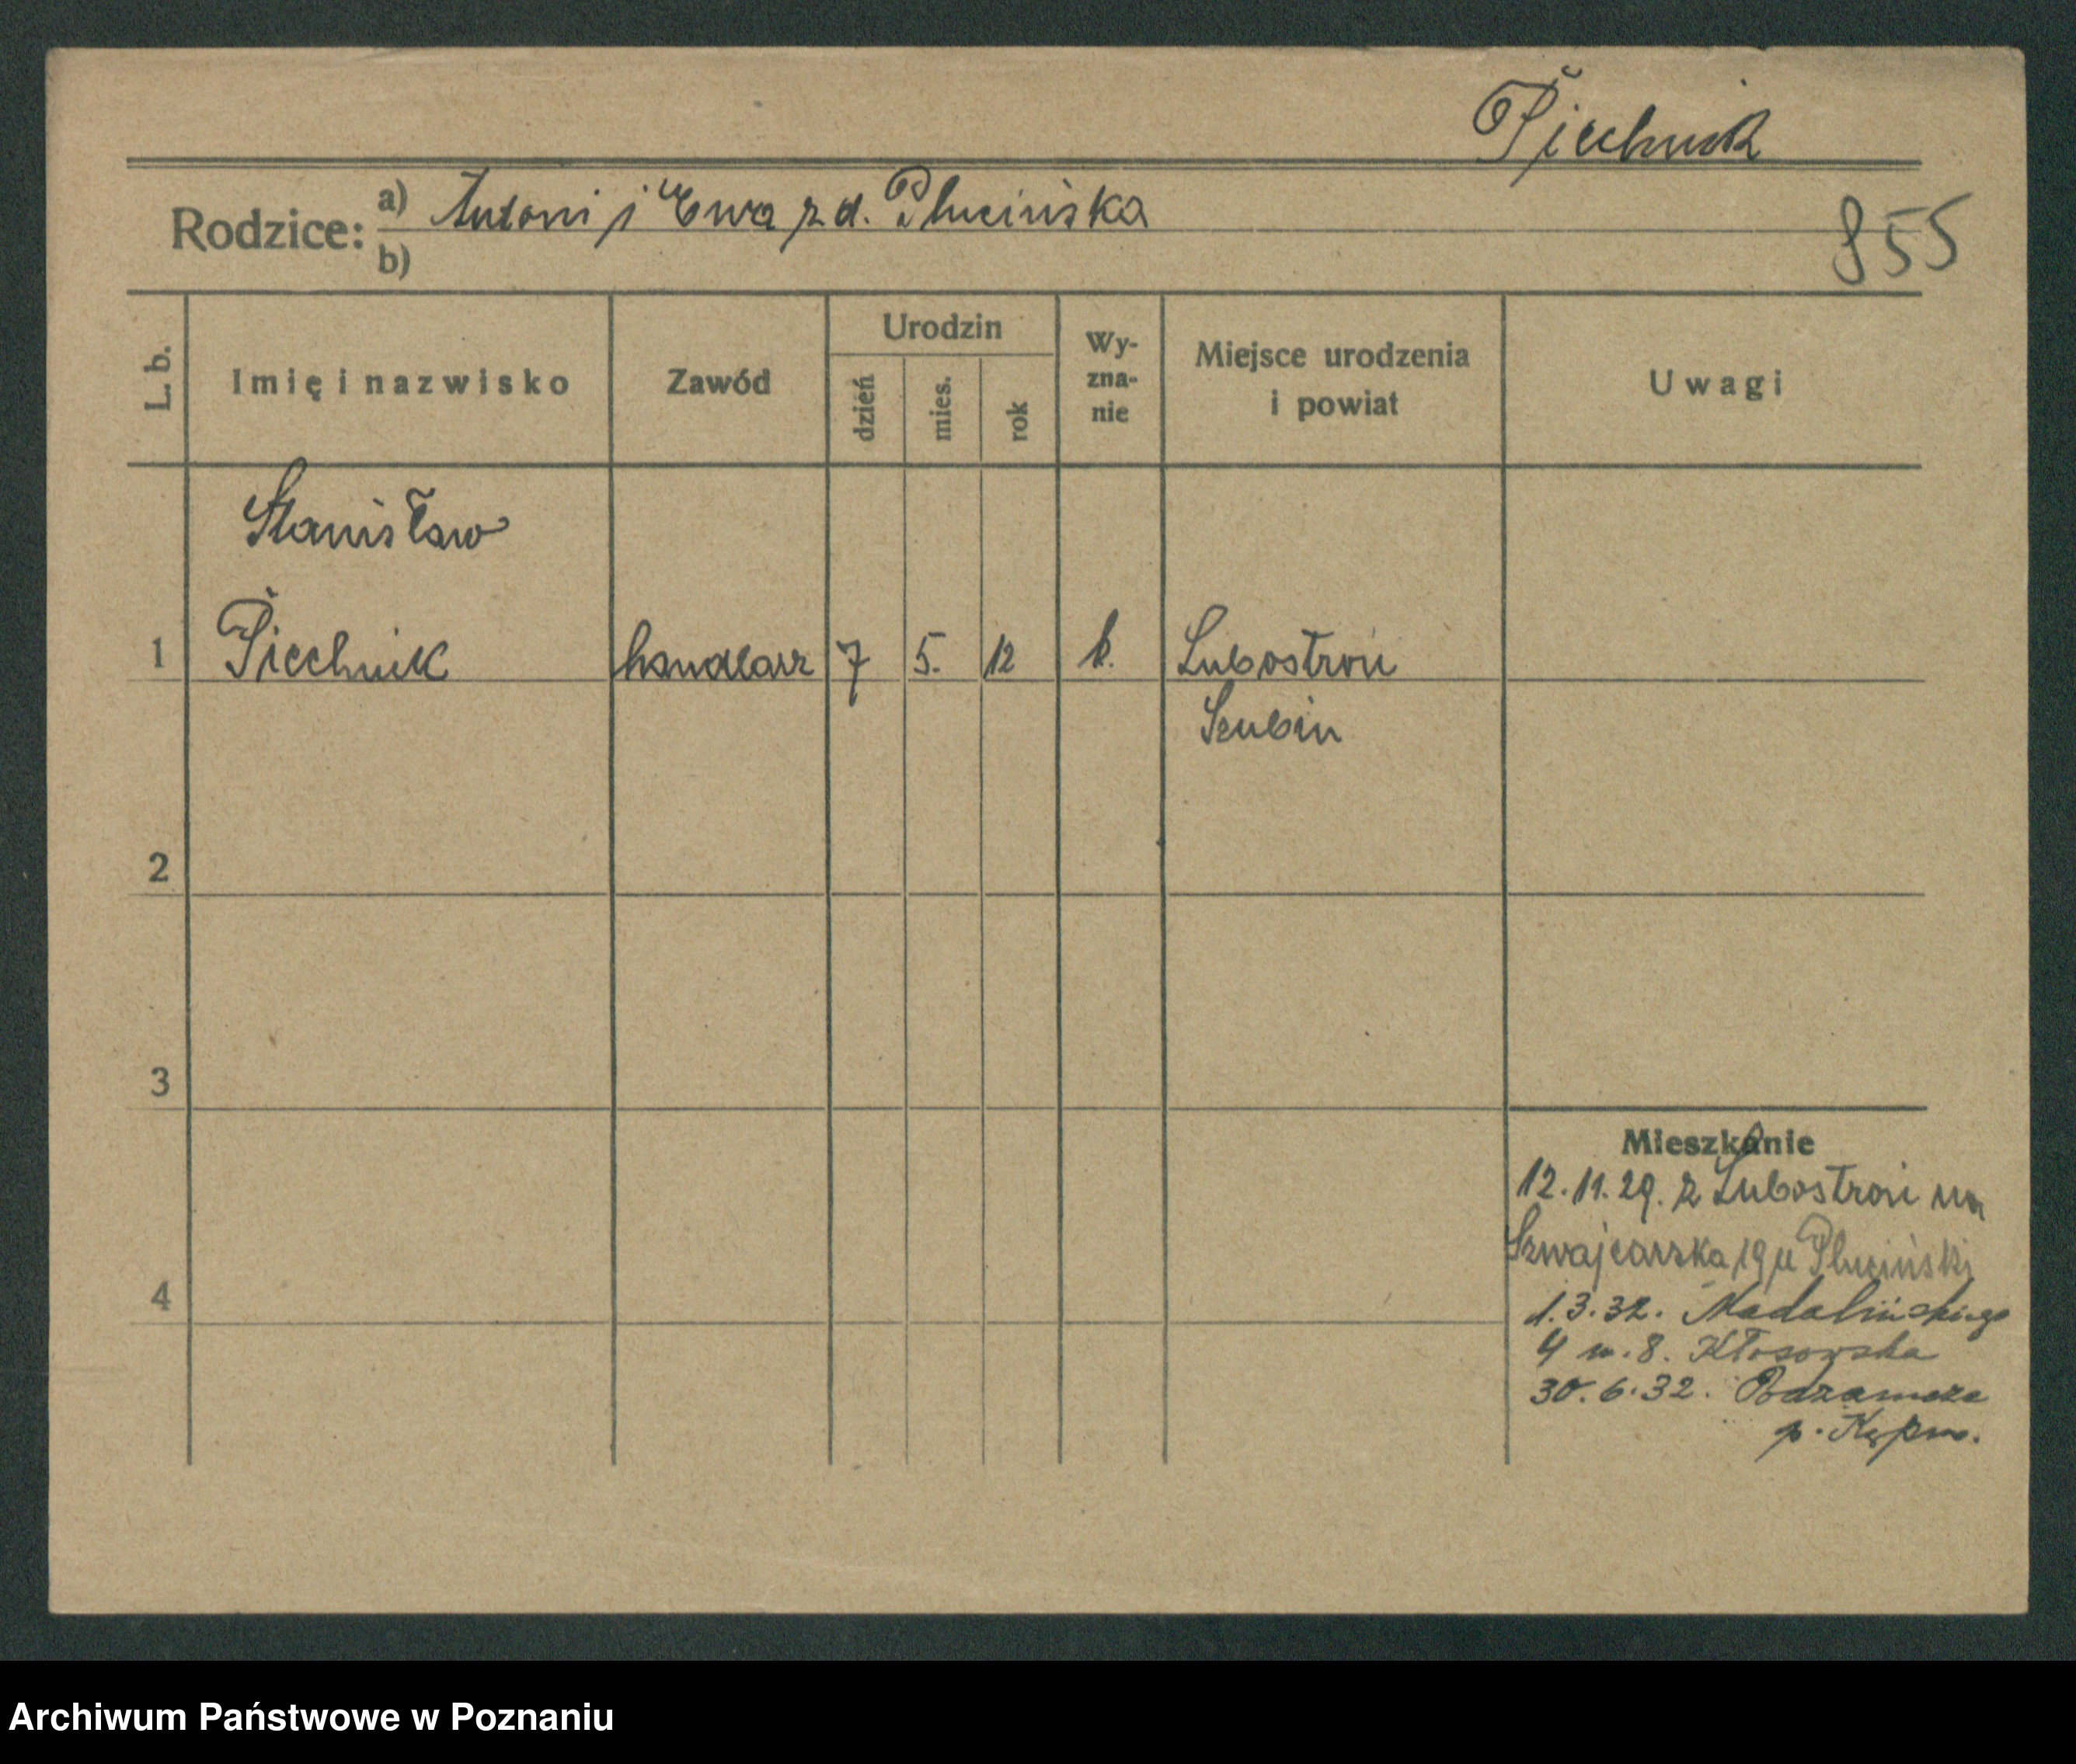 Piechnik
Rodzice: a) Antoni i Ewa z d. Plucińska
b)
855
L. b.
Imię i nazwisko
Zawód
Urodzin
dzień
mies.
rok
Wy-
zna-
nie
Miejsce urodzenia
i powiat
Uwagi
Stanisław
1 Piechnik handlarz 7 5. 12 k. Lubostroń
Szubin
2
3
4
Mieszkanie
12.11.29. z Lubostroń na
Szwajcarska 19 u Pluciński
1.3.32. Madalińskiego
4 m. 8. Kłosowska
30.6.32.
p. Kępno.
Archiwum Państwowe w Poznaniu